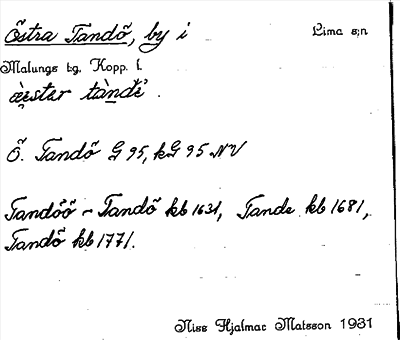 Östra Tandö, by i Lima s;n
Malungs tg, Kopp. l.
æ̀ster tàndé .
Ö. Tandö G 95, kG 95 NV
Tandöö - Tandö kb 1631, Tande kb 1681,
Tandö kb 1771.
Niss Hjalmar Matsson 1931